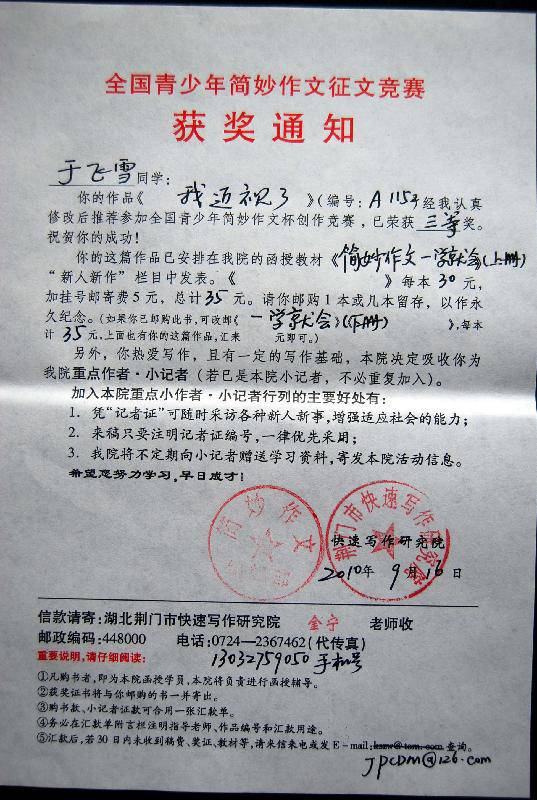 全国青少年简妙作文征文竞赛
获奖通知
于飞雪同学：
你的作品《我近视了》（编号：A1154经我认真
修改后推荐参加全国青少年简妙作文杯创作竞赛，已荣获三等奖。
祝贺你的成功！
你的这篇作品已安排在我院的函授教材《简妙作文一学就会》(上册)
“新人新作”栏目中发表。《 》每本30元，
加挂号邮寄费5元，总计35元。请你邮购1本或几本留存，以作永
久纪念。（如果你已邮购此书，可改邮《一学就会》(下册) 》，每本
计35元，上面也有你的这篇作品，汇来 元即可。）
另外，你热爱写作，且有一定的写作基础，本院决定吸收你为
我院重点作者·小记者（若已是本院小记者，不必重复加入）。
加入本院重点小作者·小记者行列的主要好处有：
1. 凭“记者证”可随时采访各种新人新事，增强适应社会的能力；
2. 来稿只要注明记者证编号，一律优先采用；
3. 我院将不定期向小记者赠送学习资料，寄发本院活动信息。
希望您努力学习，早日成才！
简妙作文
荆门市快速写作研究院
快速写作研究院
2010年9月16日
信款请寄：湖北荆门市快速写作研究院 金宁 老师收
邮政编码：448000 电话：0724—2367462（代传真）
重要说明，请仔细阅读： 13032759050手机号
①凡购书者，即为本院函授学员，本院将负责进行函授辅导。
②获奖证书将与你邮购的书一并寄出。
③购书款、小记者证款可合用一张汇款单。
④务必在汇款单附言栏注明指导老师、作品编号和汇款用途。
⑤汇款后，若30日内未收到稿费、奖证、教材等，请来信来电或发E－mail: 查询。
JPCDM@126.com